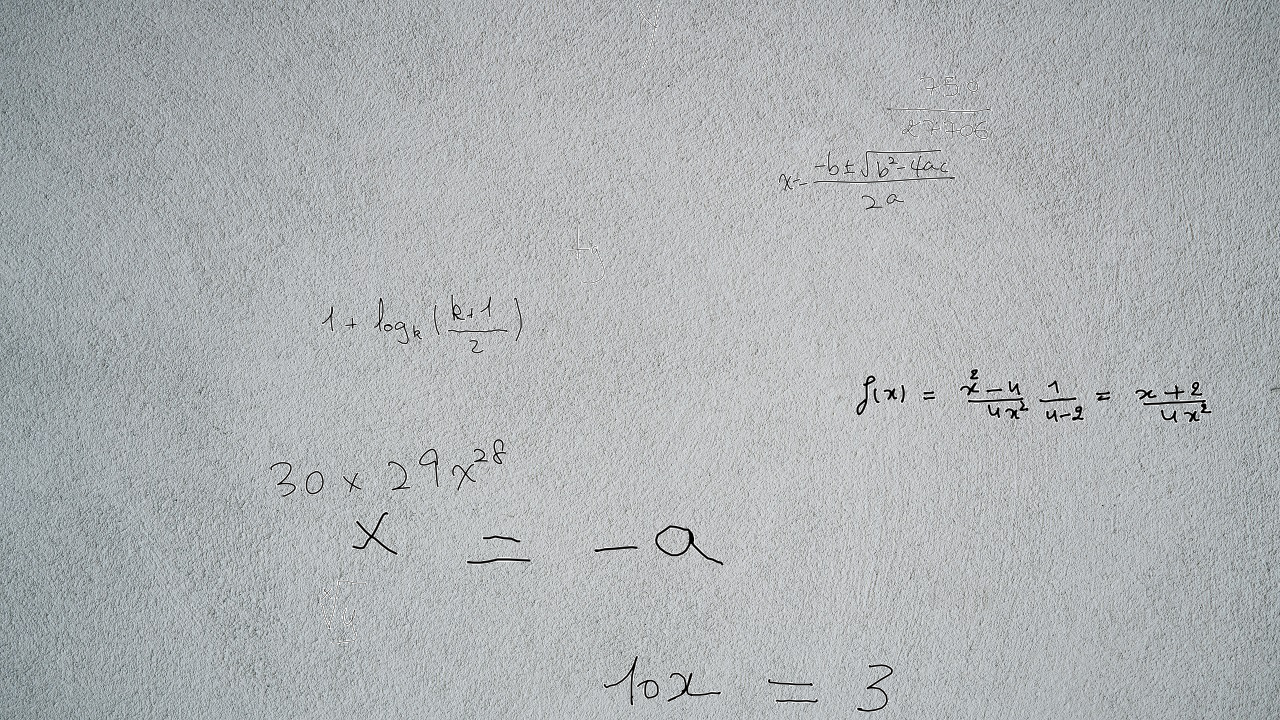 x = \frac{-b \pm \sqrt{b^2 - 4ac}}{2a}
1 + \log_k \left( \frac{k+1}{2} \right)
f(x) = \frac{x^2 - 4}{4x^2} \frac{1}{4-2} = \frac{x+2}{4x^2}
30 × 29x^{28}
x = -a
10x = 3